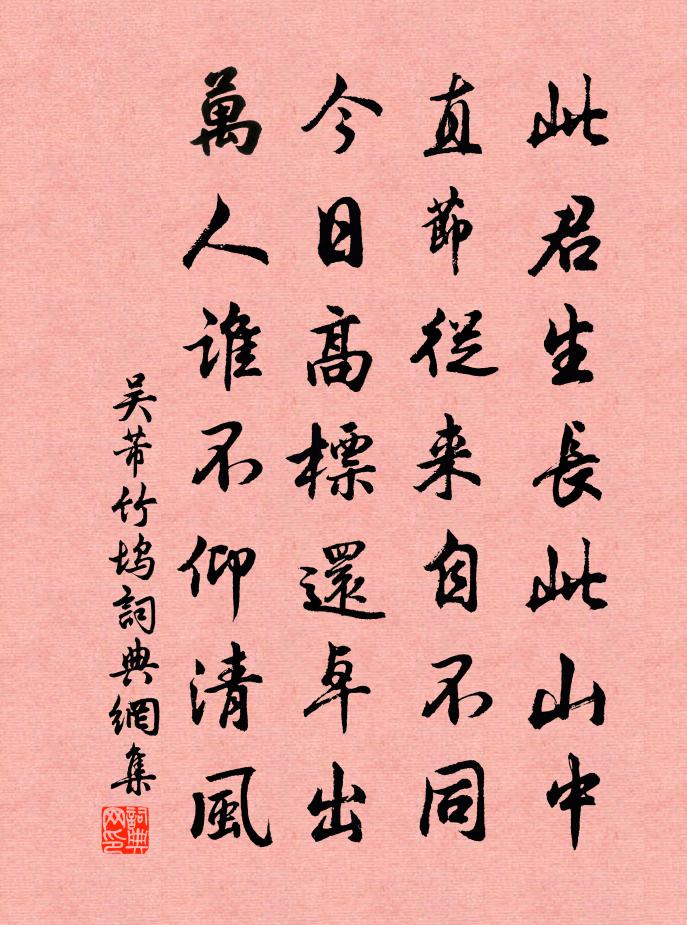 此君生長此山中
直節從来自不同
今日高標還卓出
萬人誰不仰清風
吴芾竹塢詞典網集
詞典网印